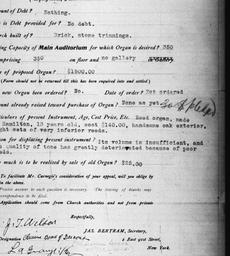 ount of Debt? Nothing.
is Debt provided for? No debt.
urch built of? Brick, stone trimmings.
ing Capacity of Main Auditorium for which Organ is desired? 350
mprising 350 on floor and no gallery
of proposed Organ? $1800.00
(Form should not be returned till this has been inquired into and settled.)
new Organ been ordered? No. Date of order? Not ordered
ount already raised toward purchase of Organ? None as yet
rticulars of present Instrument, Age, Cost Price, Etc. Reed organ, made
Hamilton, 13 years old, cost $140.00, handsome oak exterior,
ght sets of very inferior reeds.
son for displacing present instrument? Its volume is insufficient, and
quality of tone has greatly deteriorated because of poor
eds.
w much is to be realized by sale of old Organ? $25.00
To facilitate Mr. Carnegie's consideration of your appeal, will you oblige by
in the above.
Precise answer to each question is necessary. The tearing of blanks may
correspondence to be filed.
Application should come from Church authorities and not from private
Respectfully,
JAS. BERTRAM, Secretary,
2 East 91st Street,
New York.
Designation